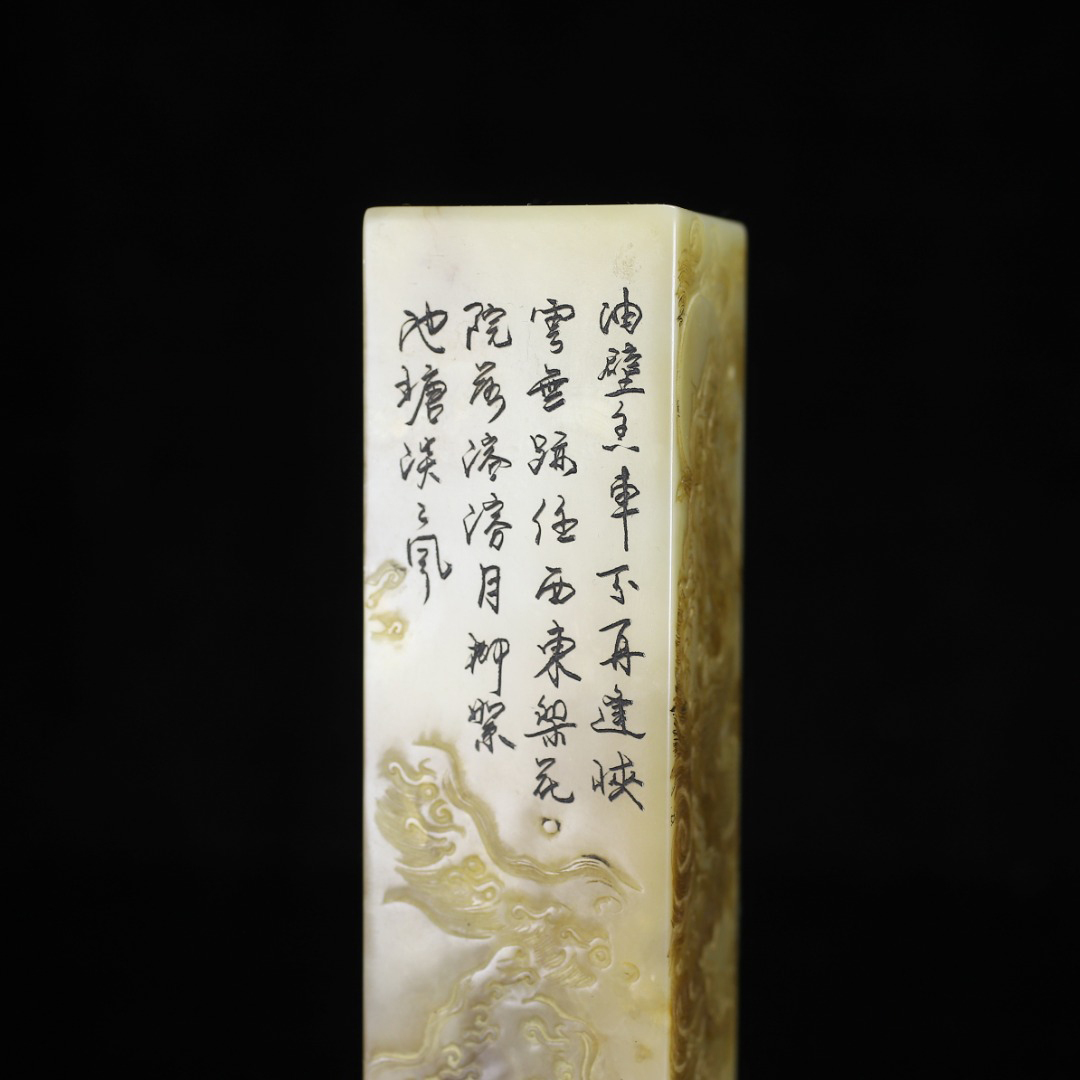 油壁香車不再逢峽
雲無跡任西東梨花
院落溶溶月柳絮
池塘淡〻風